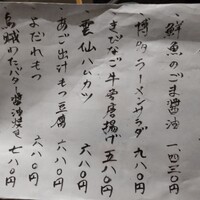 鮮魚のごま醤油 一、四三〇円
博多ラーメンサラダ 九八〇円
きびなご牛蒡唐揚げ 五八〇円
雲仙ハムカツ 六八〇円
あご出汁もつ豆腐 六八〇円
よだれもつ 六八〇円
鳥皮わたバター醤油焼き 七八〇円